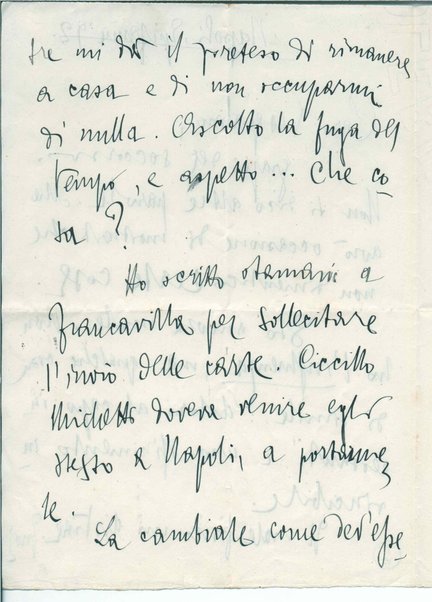 tre mi dà il pretesto di rimanere
a casa e di non occuparmi
di nulla. Ascolto la fuga del
Tempo, e aspetto ... Che co-
sa?
Ho scritto stamani a
Francavilla per sollecitare
l'invio delle carte. Ciccillo
Michetti doveva venire egli
stesso a Napoli, a portarme-
le.
La cambiale come dev'esse-